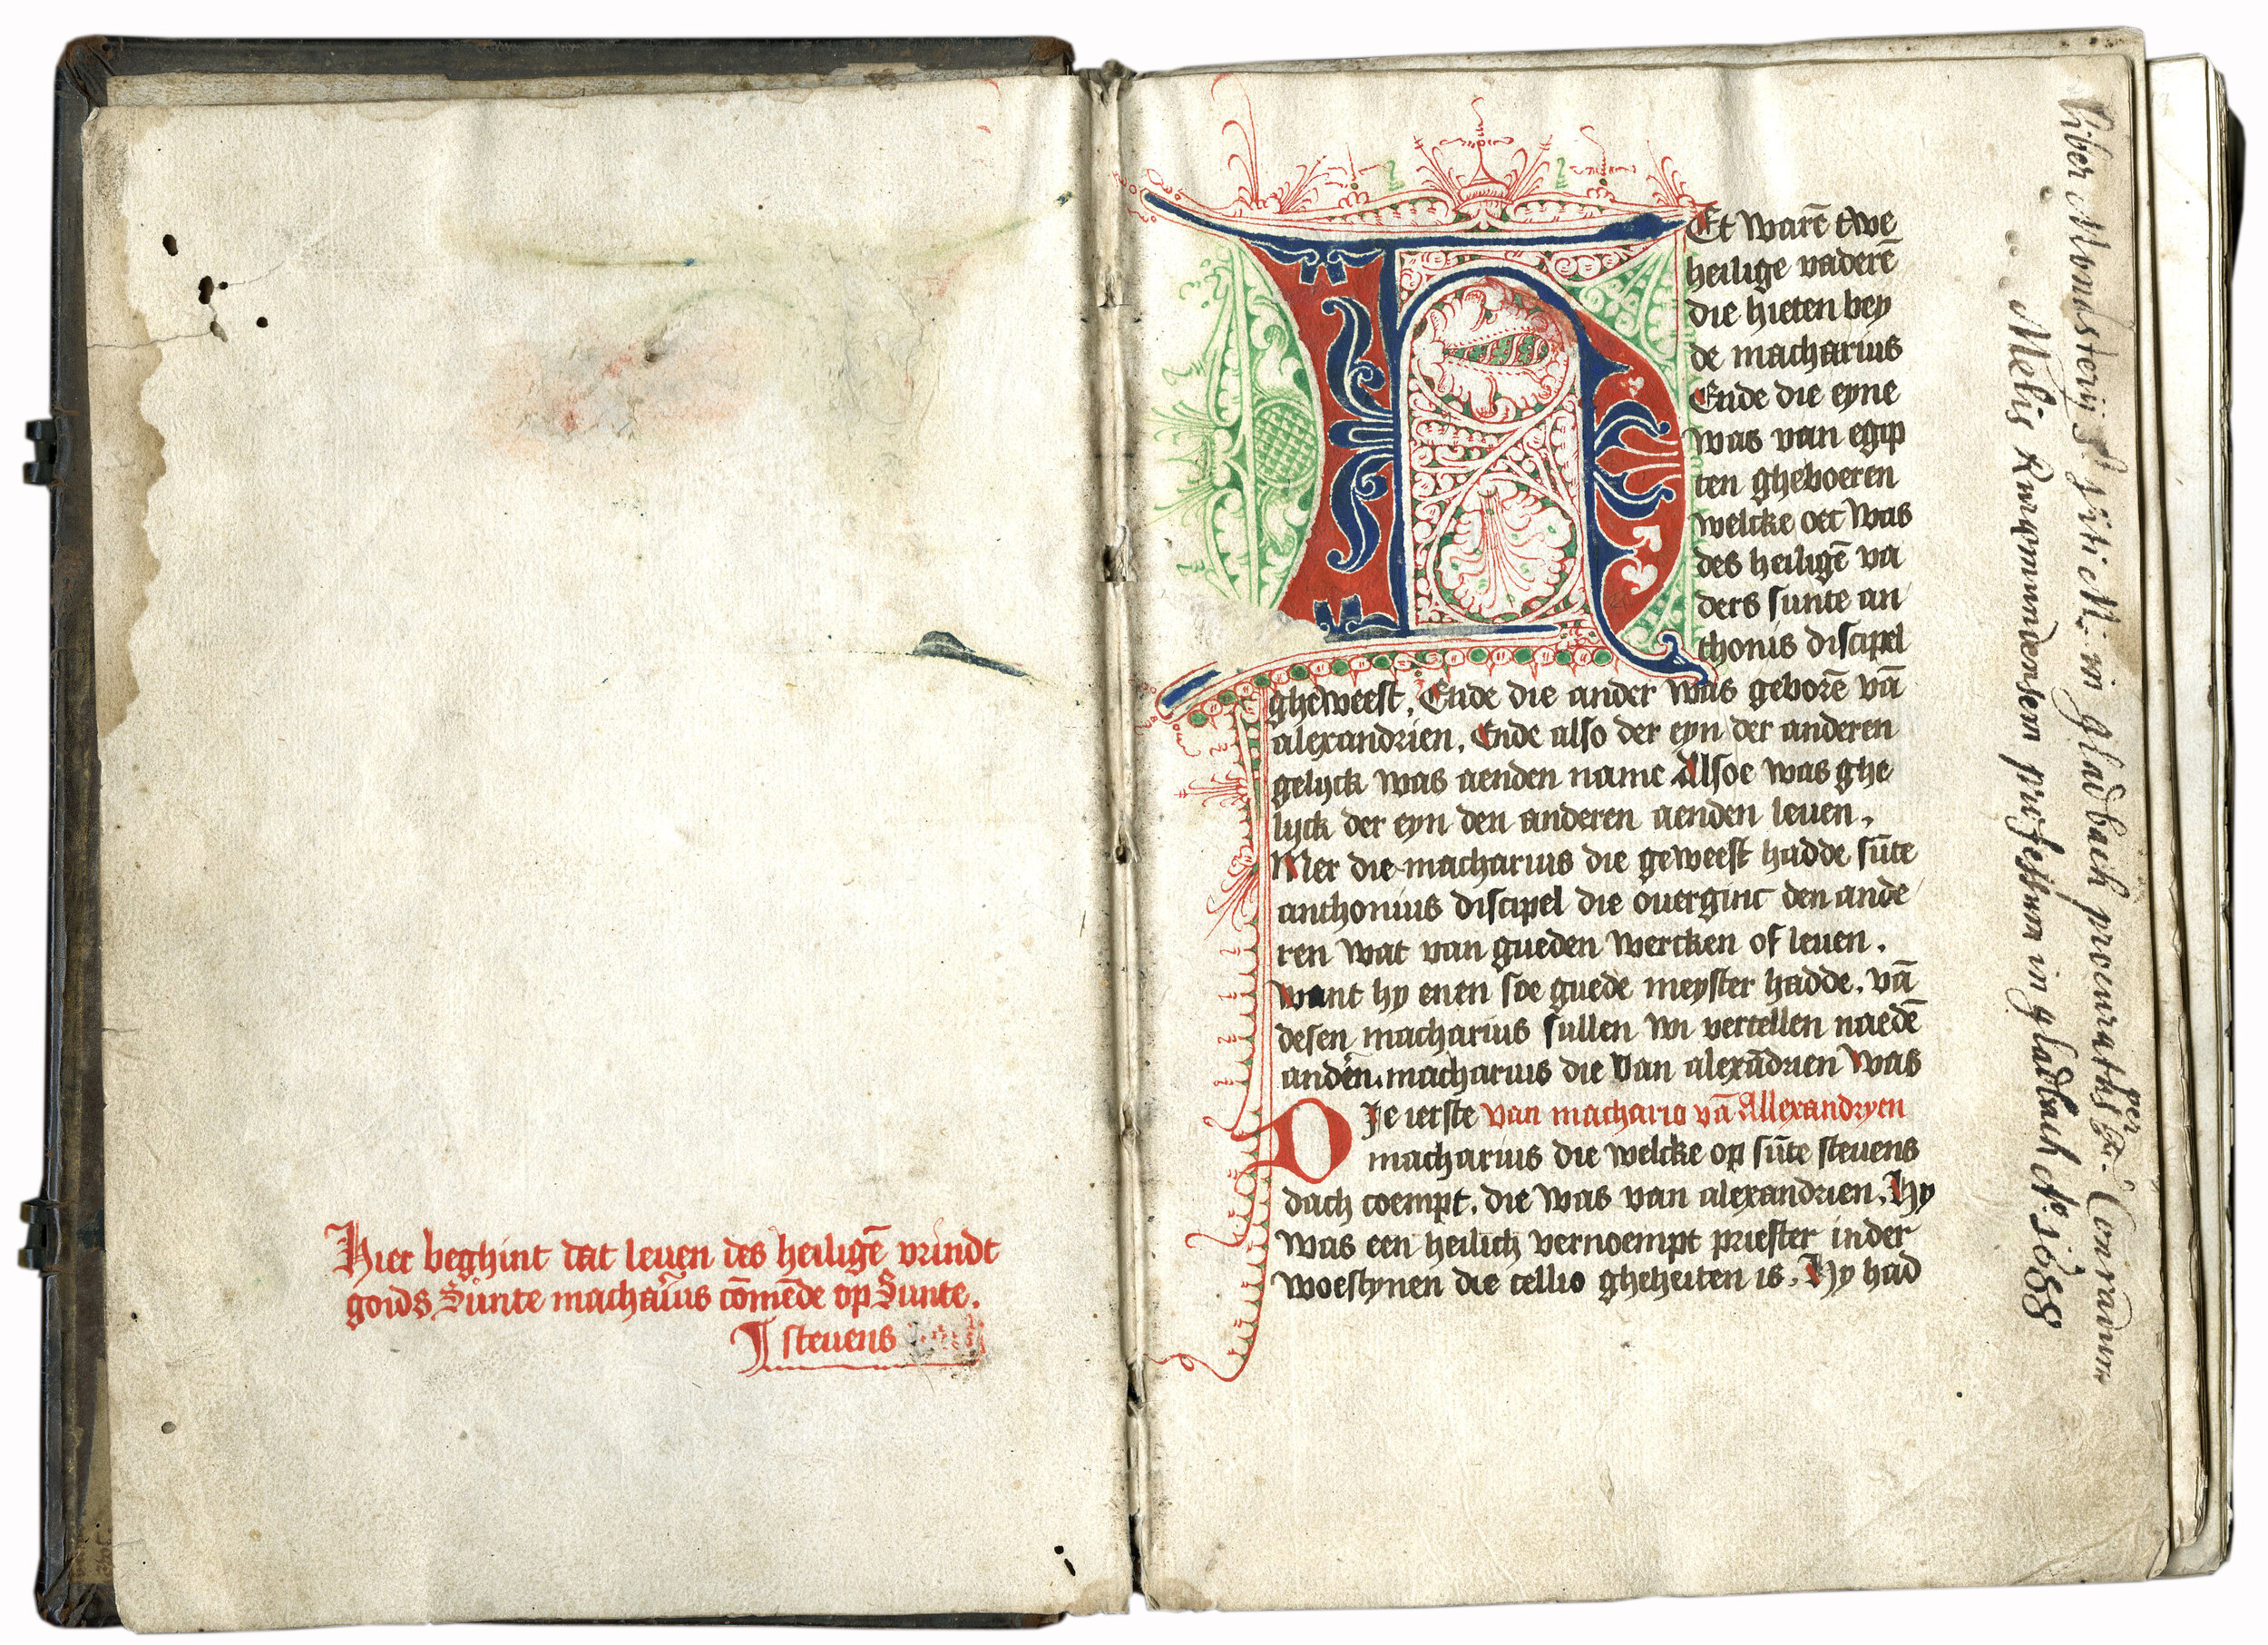 Hier beghint dat leuen des heiligē vrindt
goids Sunte macharius cōmēde op Sunte.
steuens
Et warē twe
heilige vaderē
die hieten bey
de macharius
Ende die eyne
was van egip
ten gheboeren
welcke oec was
des heiligē va
ders sunte an
thonis discipel
gheweest. Ende die ander was geborē vā
alexandrien. Ende also der eyn der anderen
gelyck was aenden name Alsoe was ghe
lyck der eyn den anderen aenden leuen.
Mer die macharius die geweest hadde sūte
anthonius discipel die ouerginc den ande
ren wat van gueden wercken of leuen.
want hy enen soe guede meyster hadde. vā
desen macharius sullen wi vertellen naedē
andēn. macharius die van alexādrien was
DIe ierste van machario vā Allexandryen
macharius die welcke op sūte steuens
dach coempt. die was van alexandrien. Hy
was een heilich vernoempt priester inder
woestynen die cellio gheheiten is. Hy had
Liber Monasterij S. Viti M. in gladbach procuratus per Fr. Conradum
Melis Ruremundensem professum in gladbach A: 1688